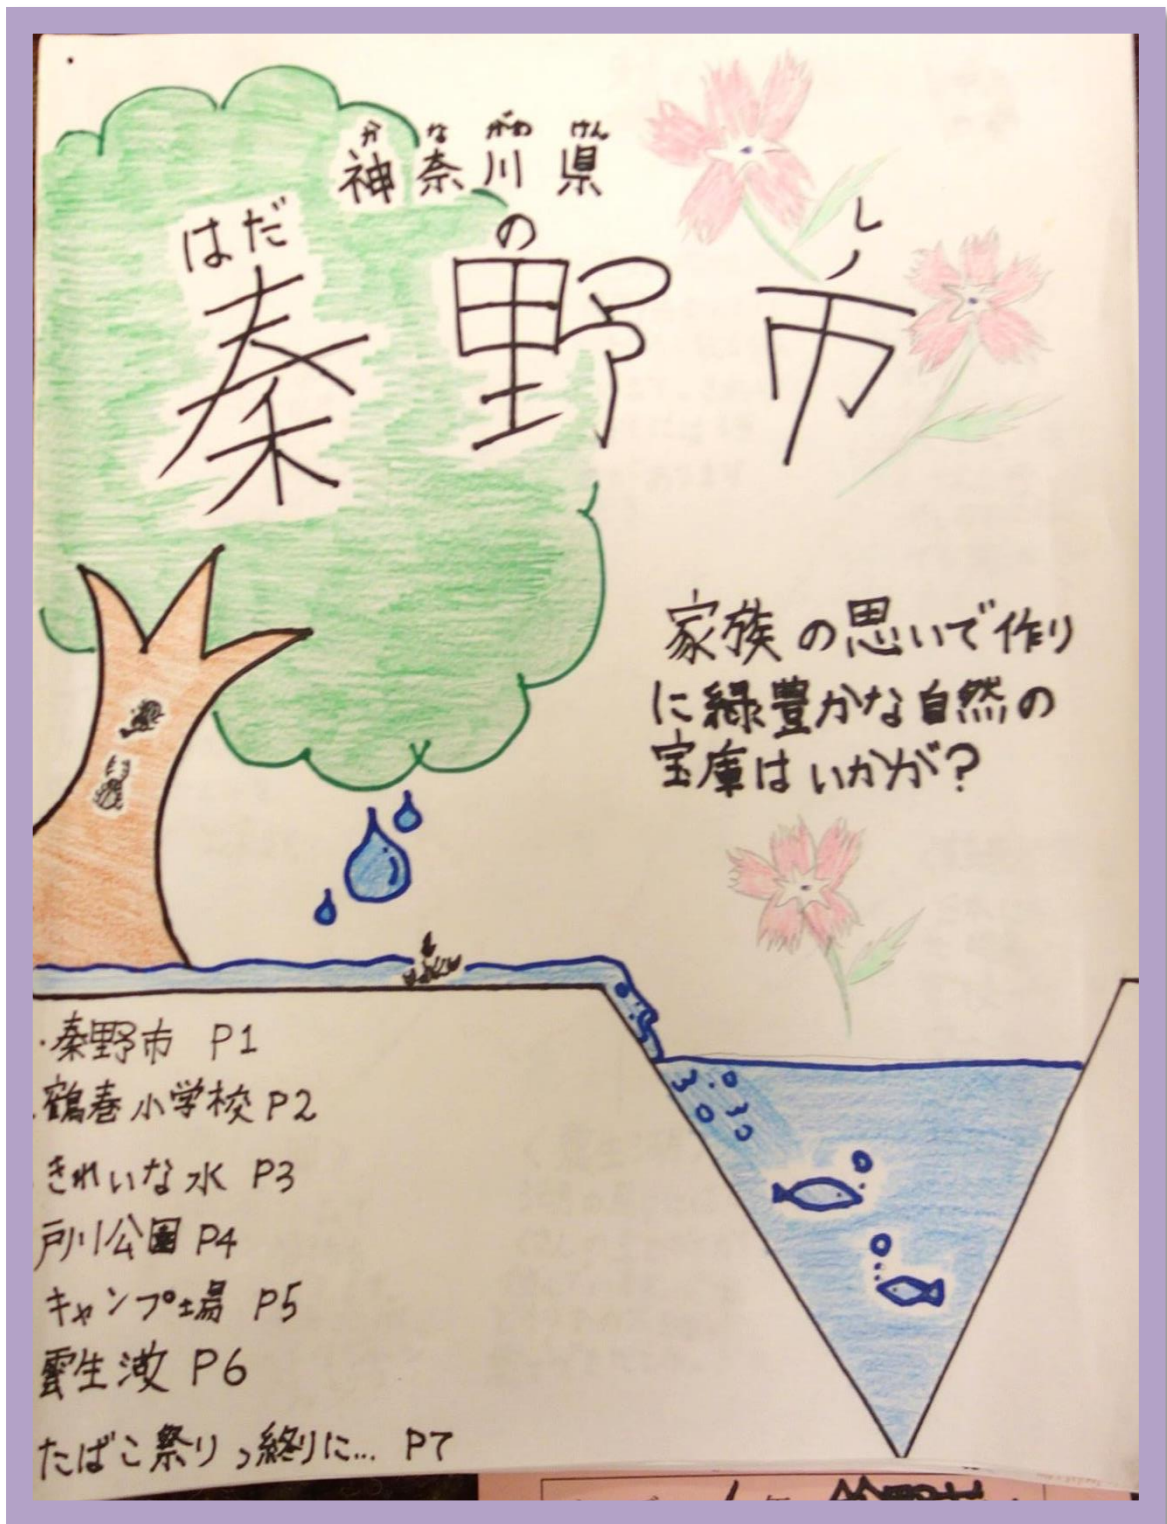 かながわけん
神奈川県
はだのし
秦野市
家族の思いで作り
に緑豊かな自然の
宝庫はいかが?
・秦野市 P1
・鶴巻小学校 P2
きれいな水 P3
戸川公園 P4
キャンプ場 P5
雲生 P6
たばこ祭り っ終りに… P7